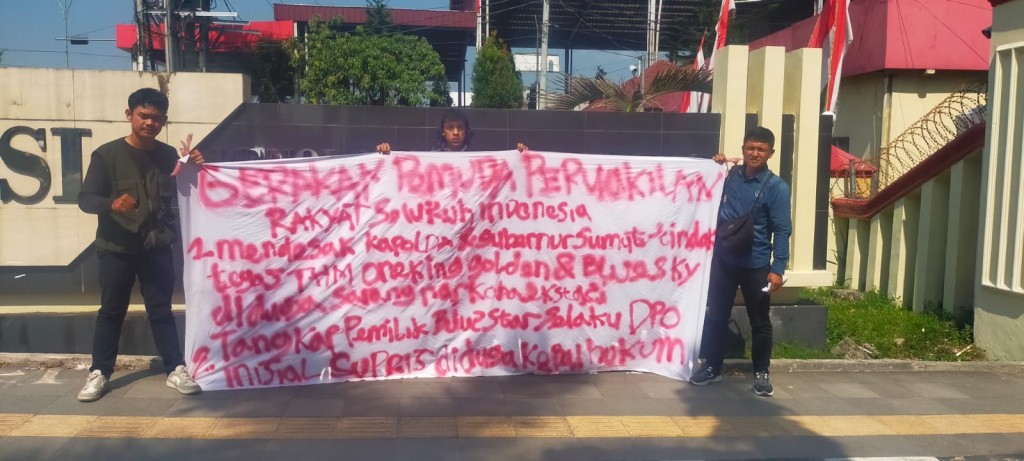 SI
GERAKAN PEMUDA PERWAKILAN
RAKYAT Seluruh indonesia
1. mendesak Kapolda & gubernur Sumut tindak
tegas THM oneking golden & Bluesky
di duga sarang narkoba & Kstasi
2. Tangkap Pemilik Blue Star Selaku DPO
inisial SUPRIS diduga Kapal hukum